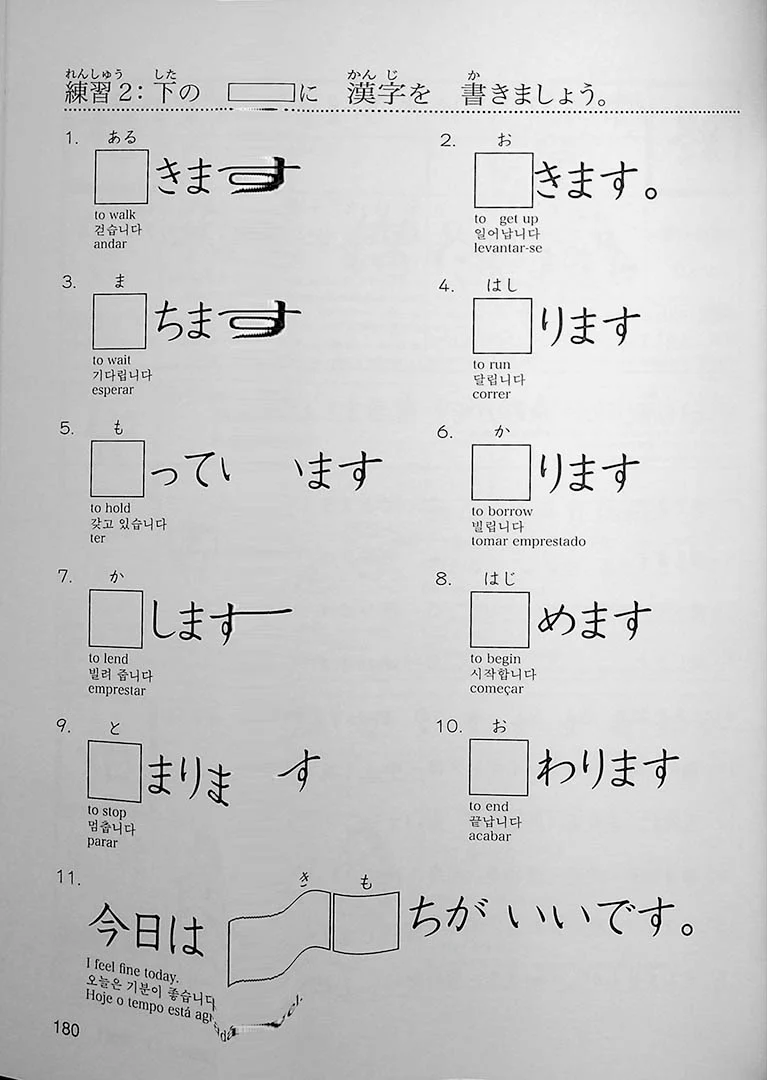 れんしゅう した かん じ か
練習2: 下の に 漢字を 書きましょう。
1. ある
きます
to walk
걷습니다
andar
2. お
きます。
to get up
일어납니다
levantar-se
3. ま
ちます
to wait
기다립니다
esperar
4. はし
ります
to run
달립니다
correr
5. も
ってい います
to hold
갖고 있습니다
ter
6. か
ります
to borrow
빌립니다
tomar emprestado
7. か
します
to lend
빌려 줍니다
emprestar
8. はじ
めます
to begin
시작합니다
começar
9. と
まりま す
to stop
멈춥니다
parar
10. お
わります
to end
끝납니다
acabar
11. き も
今日は ちが いいです。
I feel fine today.
오늘은 기분이 좋습니다
Hoje o tempo está
180